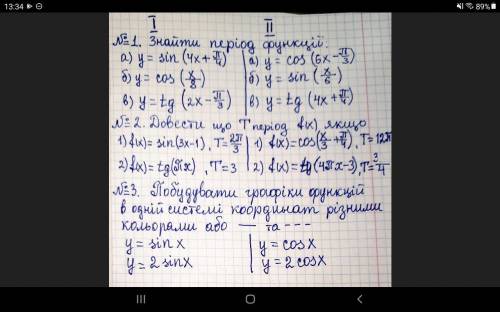 13:34 89%
I II
№1. Знайти період функцій:
а) y = sin (4x + π/4) а) y = cos (6x - π/3)
б) y = cos (x/8) б) y = sin (x/6)
в) y = tg (2x - π/3) в) y = tg (4x + π/4)
№2. Довести що T період f(x) якщо
1) f(x) = sin (3x-1), T = 2π/3 1) f(x) = cos (x/3 + π/4), T = 12π
2) f(x) = tg (πx), T = 3 2) f(x) = tg (4πx - 3), T = 3/4
№3. Побудувати графіки функцій
в одній системі координат різними
кольорами або — та ---
y = sin x y = cos x
y = 2 sin x y = 2 cos x